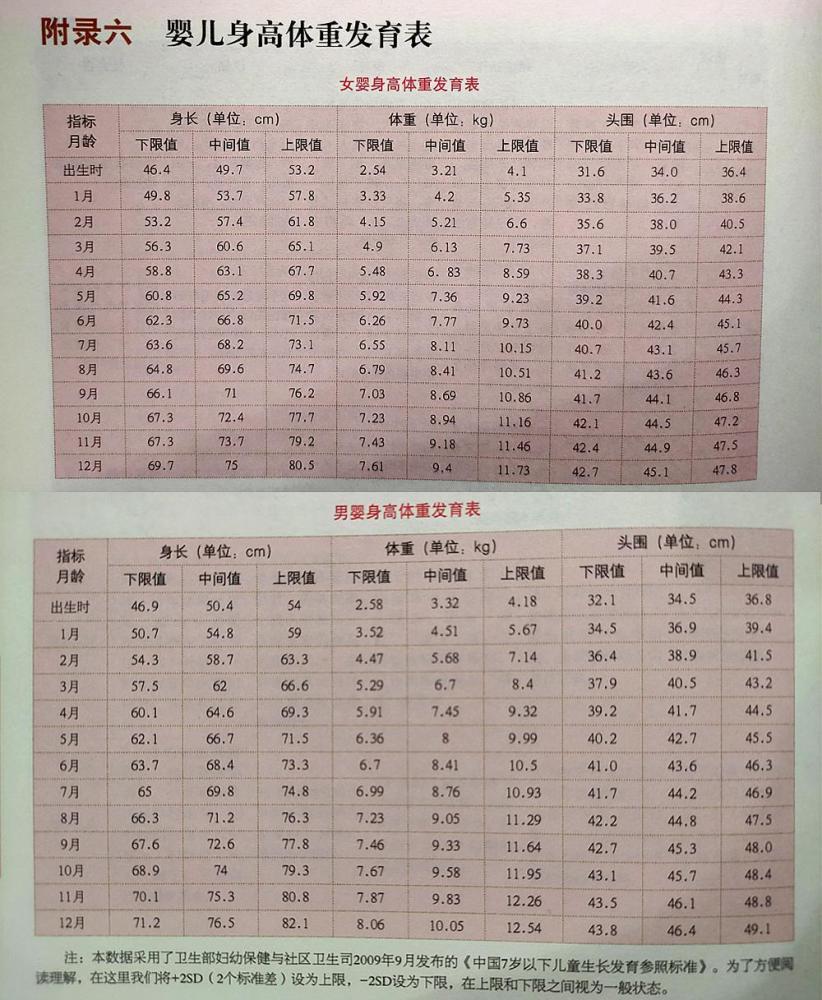 附录六 婴儿身高体重发育表
女婴身高体重发育表
指标 身长（单位：cm） 体重（单位：kg） 头围（单位：cm）
月龄 下限值 中间值 上限值 下限值 中间值 上限值 下限值 中间值 上限值
出生时 46.4 49.7 53.2 2.54 3.21 4.1 31.6 34.0 36.4
1月 49.8 53.7 57.8 3.33 4.2 5.35 33.8 36.2 38.6
2月 53.2 57.4 61.8 4.15 5.21 6.6 35.6 38.0 40.5
3月 56.3 60.6 65.1 4.9 6.13 7.73 37.1 39.5 42.1
4月 58.8 63.1 67.7 5.48 6. 83 8.59 38.3 40.7 43.3
5月 60.8 65.2 69.8 5.92 7.36 9.23 39.2 41.6 44.3
6月 62.3 66.8 71.5 6.26 7.77 9.73 40.0 42.4 45.1
7月 63.6 68.2 73.1 6.55 8.11 10.15 40.7 43.1 45.7
8月 64.8 69.6 74.7 6.79 8.41 10.51 41.2 43.6 46.3
9月 66.1 71 76.2 7.03 8.69 10.86 41.7 44.1 46.8
10月 67.3 72.4 77.7 7.23 8.94 11.16 42.1 44.5 47.2
11月 67.3 73.7 79.2 7.43 9.18 11.46 42.4 44.9 47.5
12月 69.7 75 80.5 7.61 9.4 11.73 42.7 45.1 47.8
男婴身高体重发育表
指标 身长（单位：cm） 体重（单位：kg） 头围（单位：cm）
月龄 下限值 中间值 上限值 下限值 中间值 上限值 下限值 中间值 上限值
出生时 46.9 50.4 54 2.58 3.32 4.18 32.1 34.5 36.8
1月 50.7 54.8 59 3.52 4.51 5.67 34.5 36.9 39.4
2月 54.3 58.7 63.3 4.47 5.68 7.14 36.4 38.9 41.5
3月 57.5 62 66.6 5.29 6.7 8.4 37.9 40.5 43.2
4月 60.1 64.6 69.3 5.91 7.45 9.32 39.2 41.7 44.5
5月 62.1 66.7 71.5 6.36 8 9.99 40.2 42.7 45.5
6月 63.7 68.4 73.3 6.7 8.41 10.5 41.0 43.6 46.3
7月 65 69.8 74.8 6.99 8.76 10.93 41.7 44.2 46.9
8月 66.3 71.2 76.3 7.23 9.05 11.29 42.2 44.8 47.5
9月 67.6 72.6 77.8 7.46 9.33 11.64 42.7 45.3 48.0
10月 68.9 74 79.3 7.67 9.58 11.95 43.1 45.7 48.4
11月 70.1 75.3 80.8 7.87 9.83 12.26 43.5 46.1 48.8
12月 71.2 76.5 82.1 8.06 10.05 12.54 43.8 46.4 49.1
注：本数据采用了卫生部妇幼保健与社区卫生司2009年9月发布的《中国7岁以下儿童生长发育参照标准》。为了方便阅
读理解，在这里我们将+2SD（2个标准差）设为上限，-2SD设为下限，在上限和下限之间视为一般状态。